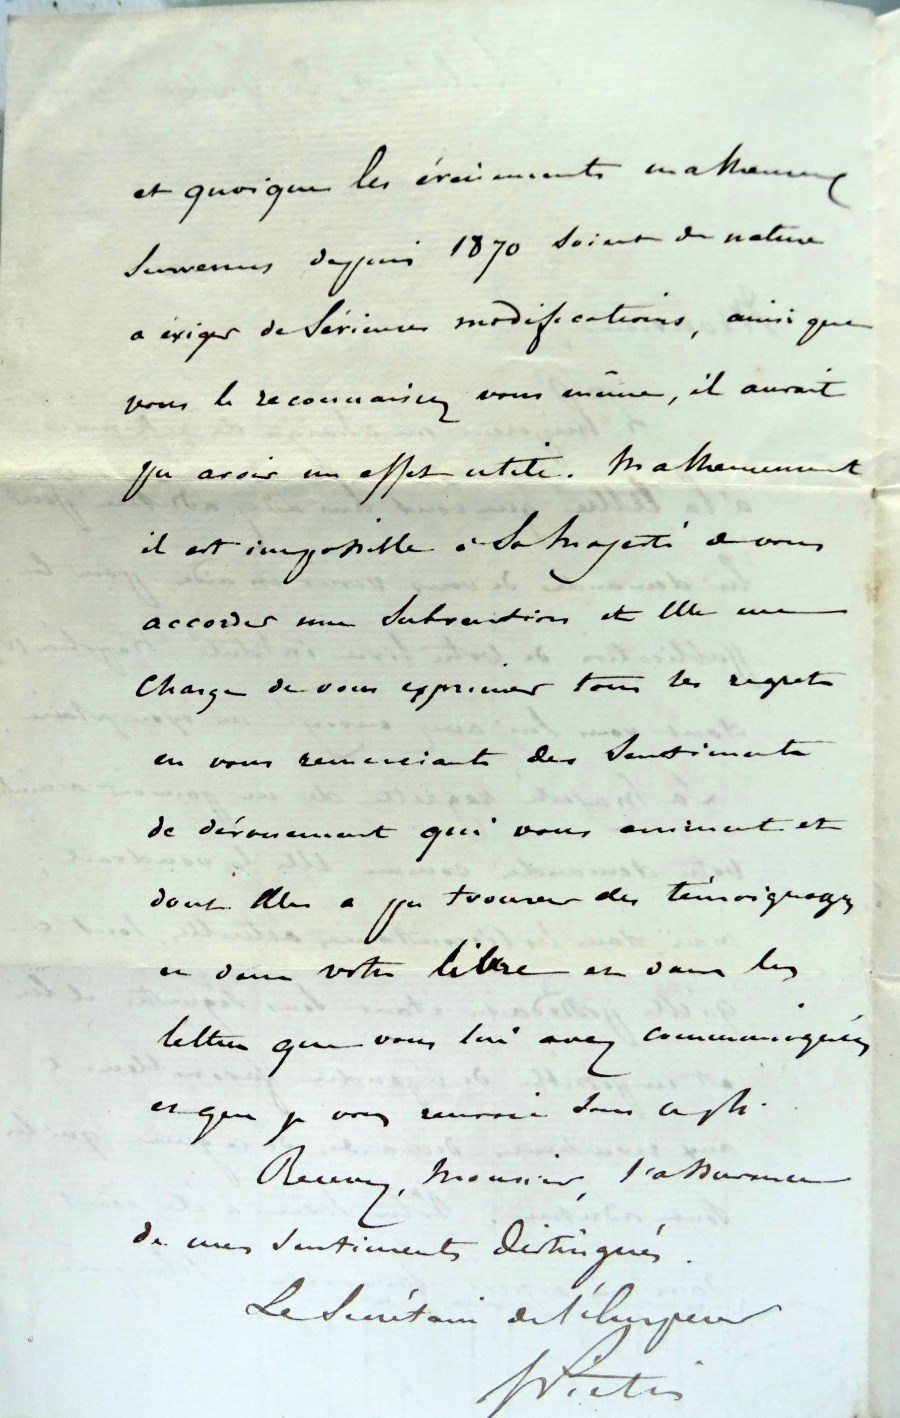 et quoique les événements malheureux
survenus depuis 1870 soient de nature
a exiger de sérieuses modifications, ainsi que
vous le reconnaissez vous même, il aurait
pu avoir un effet utile. Malheureusement
il est impossible à Sa Majesté de vous
accorder une subvention et Elle me
charge de vous exprimer tous ses regrets
en vous remerciant des sentiments
de dévouement qui vous animent et
dont Elle a pu trouver des témoignages
et dans votre livre et dans les
lettres que vous lui avez communiquées
et que je vous renvoie sous ce pli.
Recevez, Monsieur, l'assurance
de mes sentiments distingués.
Le Secrétaire de l'Empereur
Piétri